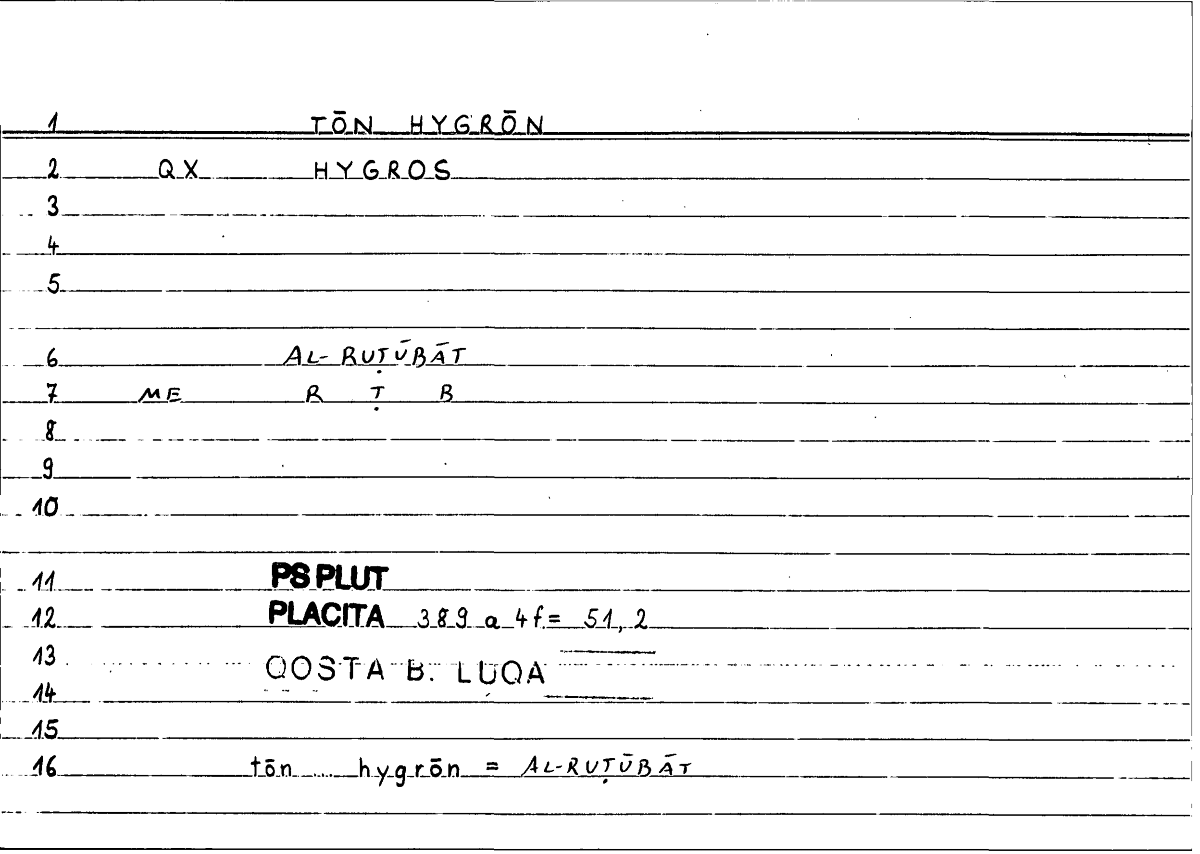 1 TŌN HYGRŌN
2 QX HYGROS
3
4
5
6 AL-RUṬŪBĀT
7 ME R Ṭ B
8
9
10
11 PS PLUT
12 PLACITA 389 a 4f = 51, 2
13 QOSTA B. LUQA
14
15
16 tōn ... hygrōn = AL-RUṬŪBĀT